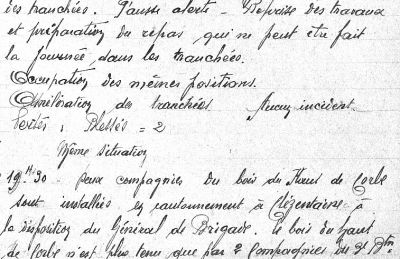 des tranchées. Fausse alerte - Reprise des travaux
et préparation du repas, qui ne peut être fait
la journée dans les tranchées.
Occupation des mêmes positions.
Amélioration des tranchées Aucun incident.
Pertes : Blessés = 2
Même situation
19H30 - Deux compagnies du bois du Haut de
sont installées en cantonnement à à
la disposition du Général de Brigade. Le bois du haut
de n'est plus tenu que par 2 Compagnies du 2e Btn